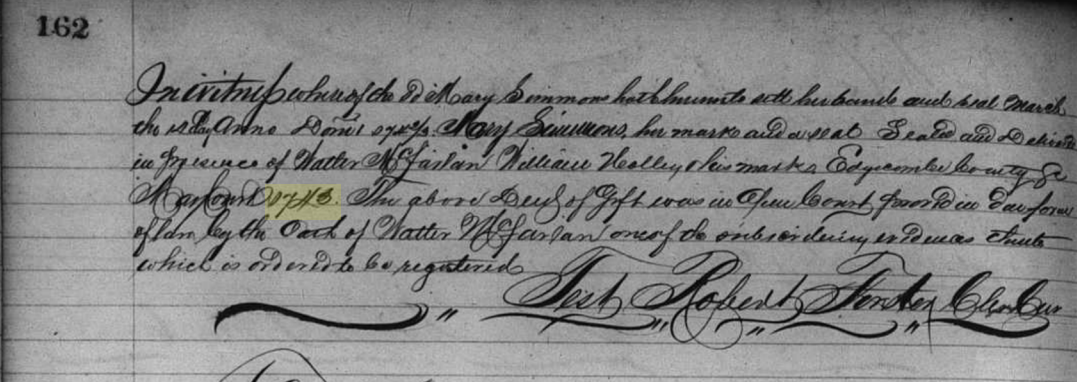 162
In witness whereof the sd Mary Simmons hath hereunto sett her hand and seal March
the 12 day Anno Dom 1742/3. Mary Simmons, her mark and a seal Seald and Deliverd
in Presence of Walter McFarlan William Holley his mark Edgcombe County Sc
May Court 1743. The above Deed of Gift was in Open Court provd in due form
of law by the Oath of Walter McFarlan one of the subscribing evidences thereto
which is ordered to be registered
Test Robert Forster Cler Cur